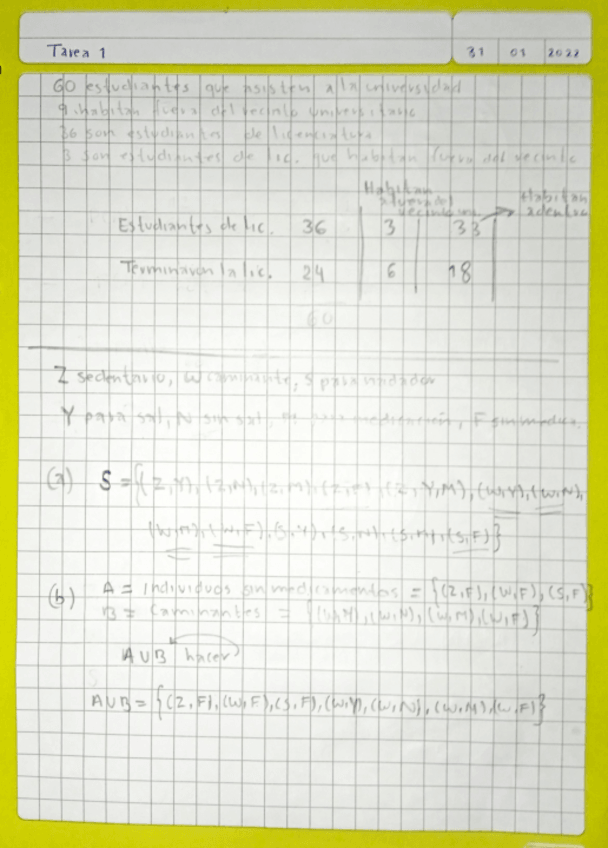 Tarea 1 31 01 2022
60 estudiantes que asisten a la universidad
9 habitan fuera del recinto universitario
36 son estudiantes de licenciatura
3 son estudiantes de lic. que habitan fuera del recinto
Habitan afuera del recinto Habitan adentro
Estudiantes de lic. 36 3 33
Terminaron la lic. 24 6 18
60
Z sedentario, W caminante, S para nadador
Y para sal, N sin sal, M para medicación, F
(a) S = {(Z,Y), (Z,N), (Z,M), (Z,F), (Z,Y,M), (W,Y), (W,N),
(W,M), (W,F), (S,Y), (S,N), (S,M), (S,F)}
(b) A = Individuos sin medicamentos = {(Z,F), (W,F), (S,F)}
B = Caminantes = {(W,Y), (W,N), (W,M), (W,F)}
A∪B hacer
A∪B = {(Z,F), (W,F), (S,F), (W,Y), (W,N), (W,M), (W,F)}